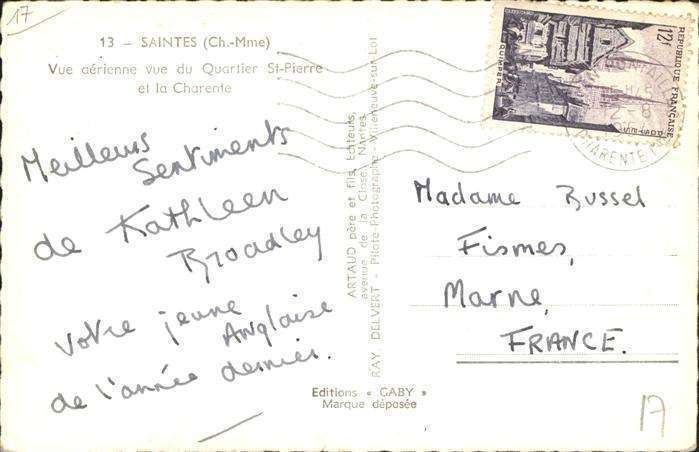 17
13 — SAINTES (Ch.-Mme)
Vue aérienne vue du Quartier St-Pierre
et la Charente
Meilleurs
Sentiments
de Kathleen
Broadley
Votre jeune
Anglaise
de l'année dernier.
ARTAUD père et fils, Editeurs,
avenue de la Close, Nantes
RAY. DELVERT - Pilote Photographe - Villeneuve-sur-Lot
Editions « GABY »
Marque déposée
12f
REPUBLIQUE FRANÇAISE
QUIMPER
POSTES
CHARENTE
Madame Bussel
Fismes,
Marne,
FRANCE.
17